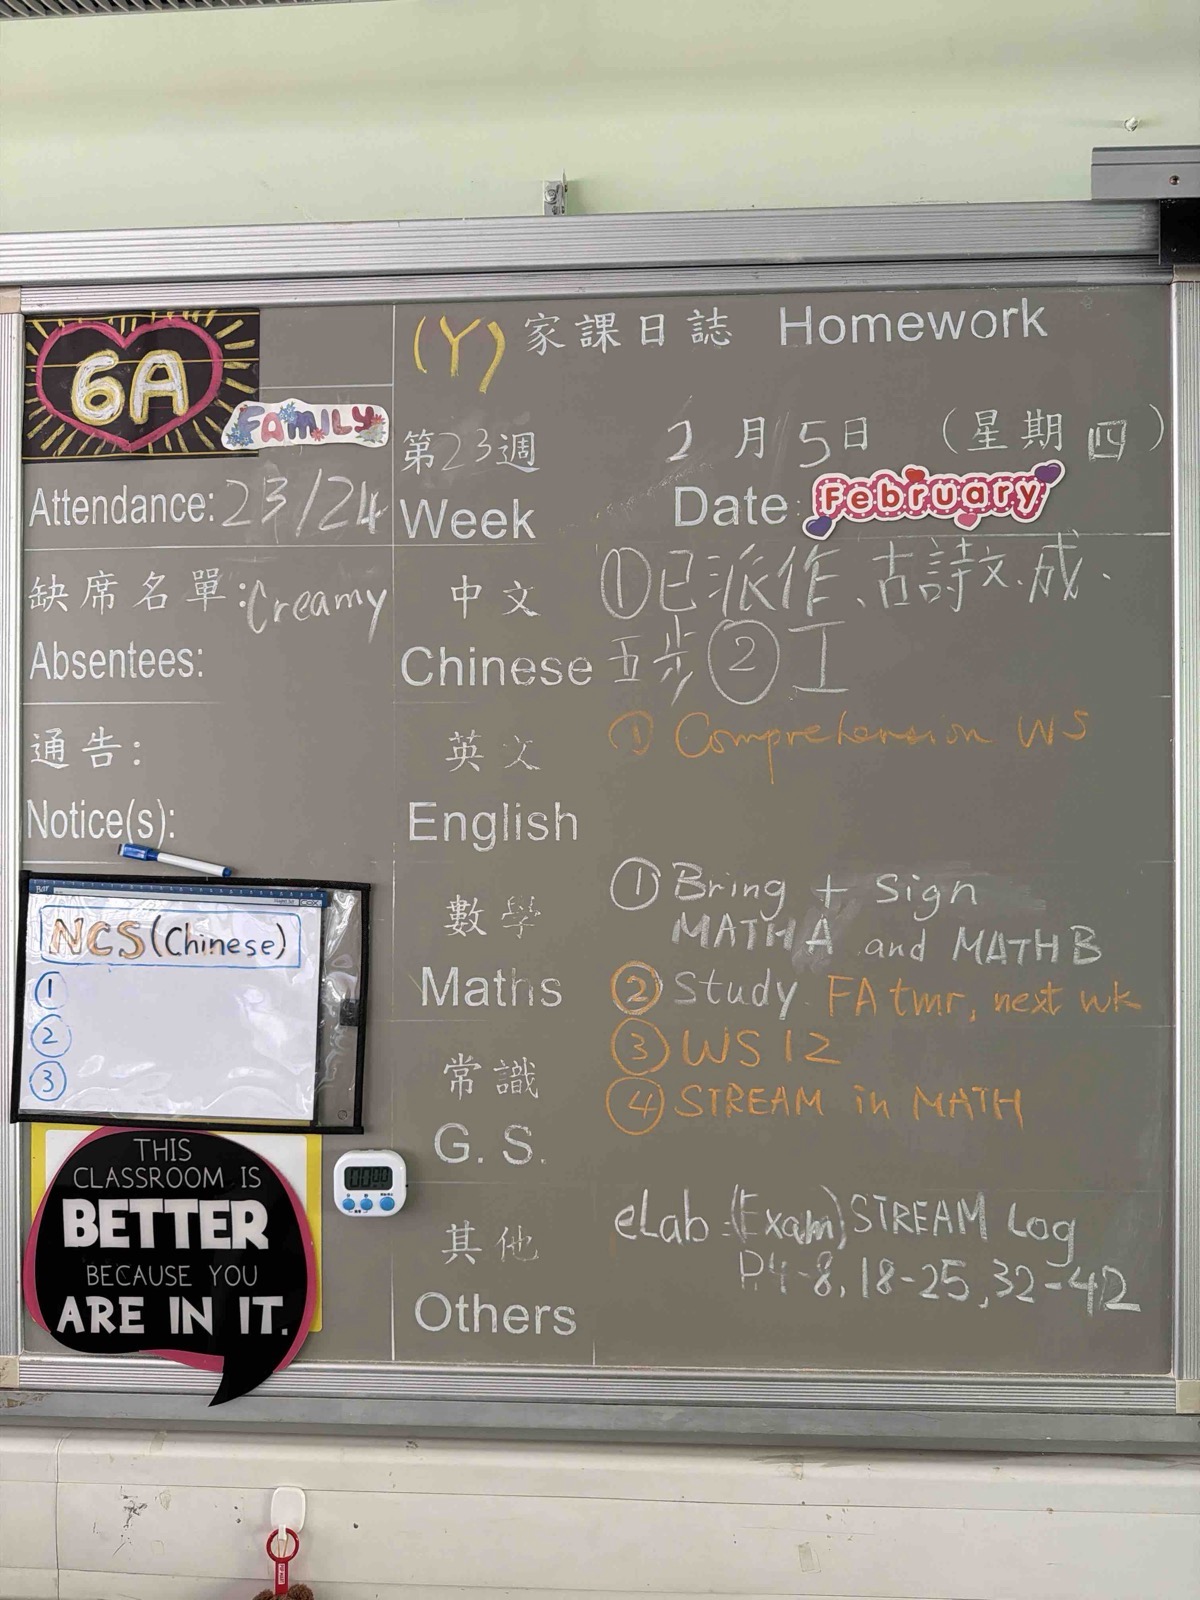 6A
FAMILY
Attendance: 23/24
缺席名單: Creamy
Absentees:
通告:
Notice(s):
NCS (Chinese)
1
2
3
THIS
CLASSROOM IS
BETTER
BECAUSE YOU
ARE IN IT.
(Y) 家課日誌 Homework
第23週 2月5日 (星期四)
Week Date: February
中文 ①已派作、古詩文.成.
Chinese 五步 ② 工
英文 ① Comprehension WS
English
數學 ① Bring + Sign
MATH A and MATH B
Maths ② Study FA tmr, next wk
③ WS 12
常識 ④ STREAM in MATH
G. S.
其他 eLab: (Exam) STREAM Log
P.4-8, 18-25, 32-42
Others